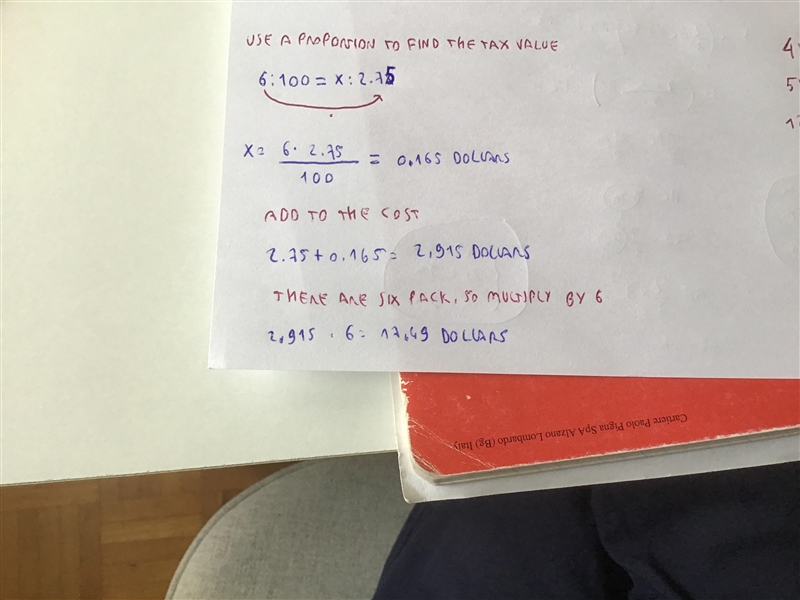 USE A PROPORTION TO FIND THE TAX VALUE
6:100 = X:2.75
X = 6 · 2.75 / 100 = 0.165 DOLLARS
ADD TO THE COST
2.75 + 0.165 = 2,915 DOLLARS
THERE ARE SIX PACK, SO MULTIPLY BY 6
2,915 · 6 = 17,49 DOLLARS
4
5
1
Cartiere Paolo Pigna SpA Alzano Lombardo (Bg) Italy